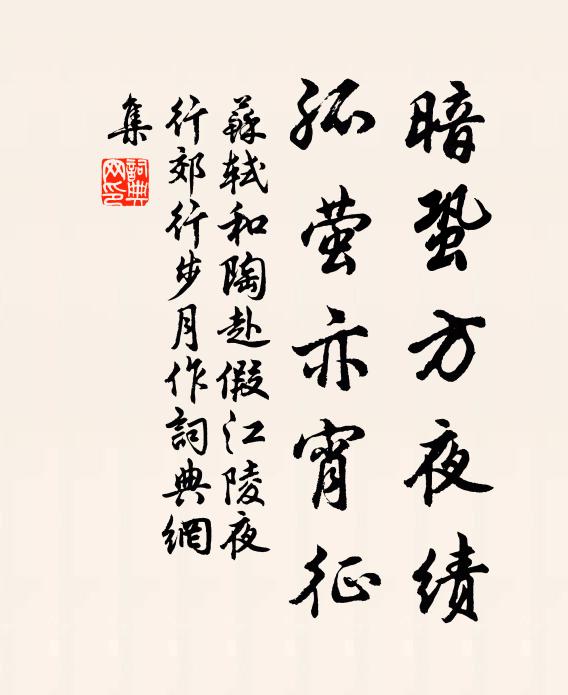 暗蛩方夜績
孤萤亦宵征
蘇軾和陶赴假江陵夜
行郊行步月作詞典網
集
詞典
网印